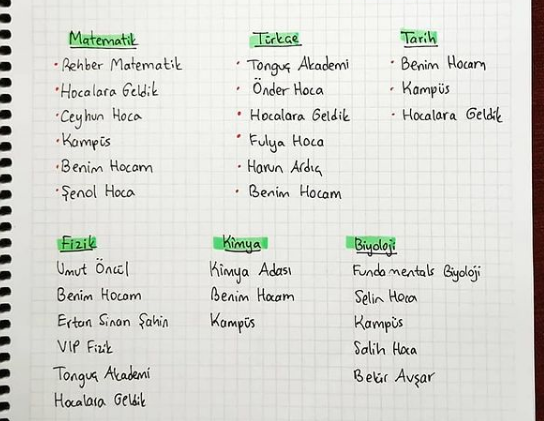 Matematik
Rehber Matematik
Hocalara Geldik
Ceyhun Hoca
Kampüs
Benim Hocam
Şenol Hoca
Türkçe
Tonguç Akademi
Önder Hoca
Hocalara Geldik
Fulya Hoca
Harun Ardıç
Benim Hocam
Tarih
Benim Hocam
Kampüs
Hocalara Geldik
Fizik
Umut Öncül
Benim Hocam
Ertan Sinan Şahin
VIP Fizik
Tonguç Akademi
Hocalara Geldik
Kimya
Kimya Adası
Benim Hocam
Kampüs
Biyoloji
Fundamentals Biyoloji
Selin Hoca
Kampüs
Salih Hoca
Bekir Avşar